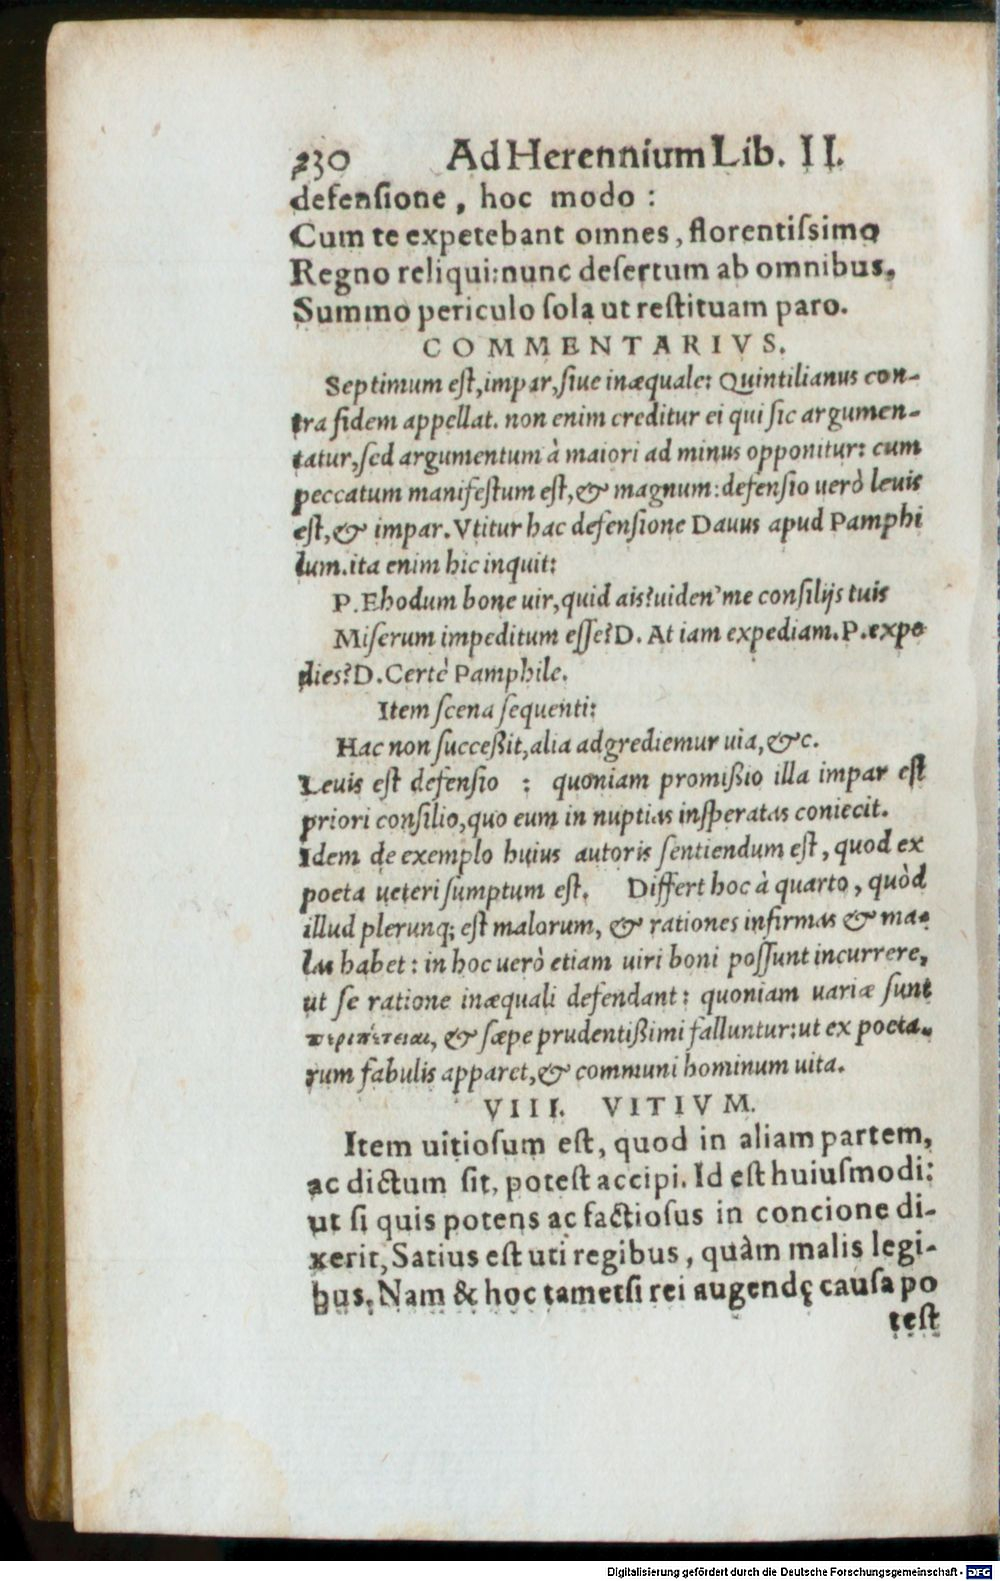 230 Ad Herennium Lib. II.
defenſione, hoc modo:
Cum te expetebant omnes, florentiſsimo
Regno reliqui: nunc deſertum ab omnibus.
Summo periculo ſola ut reſtituam paro.
COMMENTARIVS.
Septimum eſt, impar, ſiue inæquale: Quintilianus con-
tra fidem appellat. non enim creditur ei qui ſic argumen-
tatur, ſed argumentum à maiori ad minus opponitur: cum
peccatum manifeſtum eſt, & magnum: defenſio uerò leuis
eſt, & impar. Vtitur hac defenſione Dauus apud Pamphi
lum. ita enim hic inquit:
P. Ehodum bone uir, quid ais? uiden' me conſilijs tuis
Miſerum impeditum eſſe? D. At iam expediam. P. expe
dies? D. Certè Pamphile.
Item ſcena ſequenti:
Hac non ſucceßit, alia adgrediemur uia, &c.
Leuis eſt defenſio : quoniam promißio illa impar eſt
priori conſilio, quo eum in nuptias inſperatas coniecit.
Idem de exemplo huius autoris ſentiendum eſt, quod ex
poeta ueteri ſumptum eſt. Differt hoc à quarto, quòd
illud plerunq; eſt malorum, & rationes infirmas & ma-
las habet: in hoc uerò etiam uiri boni poſſunt incurrere,
ut ſe ratione inæquali defendant: quoniam uariæ ſunt
περιπέτειαι, & ſæpe prudentißimi falluntur: ut ex poeta-
rum fabulis apparet, & communi hominum uita.
VIII. VITIVM.
Item uitioſum eſt, quod in aliam partem,
ac dictum ſit, poteſt accipi. Id eſt huiuſmodi:
ut ſi quis potens ac factioſus in concione di-
xerit, Satius eſt uti regibus, quàm malis legi-
bus. Nam & hoc tametſi rei augendę cauſa po
teſt
Digitalisierung gefördert durch die Deutsche Forschungsgemeinschaft - DFG